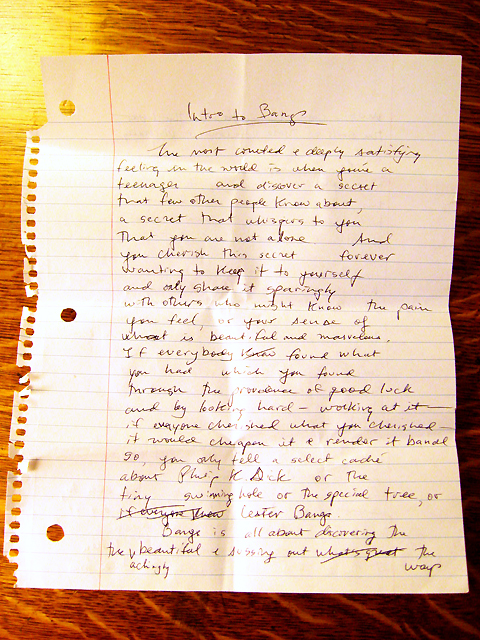 Intro to Bangs
The most coveted & deeply satisfying
feeling in the world is when you're a
teenager and discover a secret
that few other people know about,
a secret that whispers to you
that you are not alone And
you cherish this secret forever
wanting to keep it to yourself
and only share it sparingly
with others who might know the pain
you feel, or your sense of
what is beautiful and marvelous.
If everybody know found what
you had which you found
through the providence of good luck
and by looking hard — working at it —
if everyone cherished what you cherished —
it would cheapen it & render it banal
so, you only tell a select caché
about Philip K. Dick or the
tiny swimming hole or the special tree, or
if everyone knew Lester Bangs.
Bangs is all about discovering the
the beautiful & sussing out what's great the
achingly ways